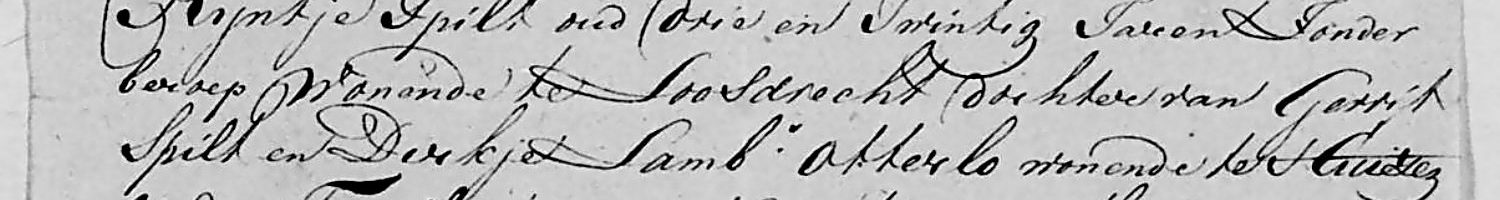 Rijntje Spilt oud drie en Twintig Jaren Zonder
beroep Wonende te Loosdrecht dochter van Gerrit
Spilt en Dirkje Lamb.s Otterlo wonende te